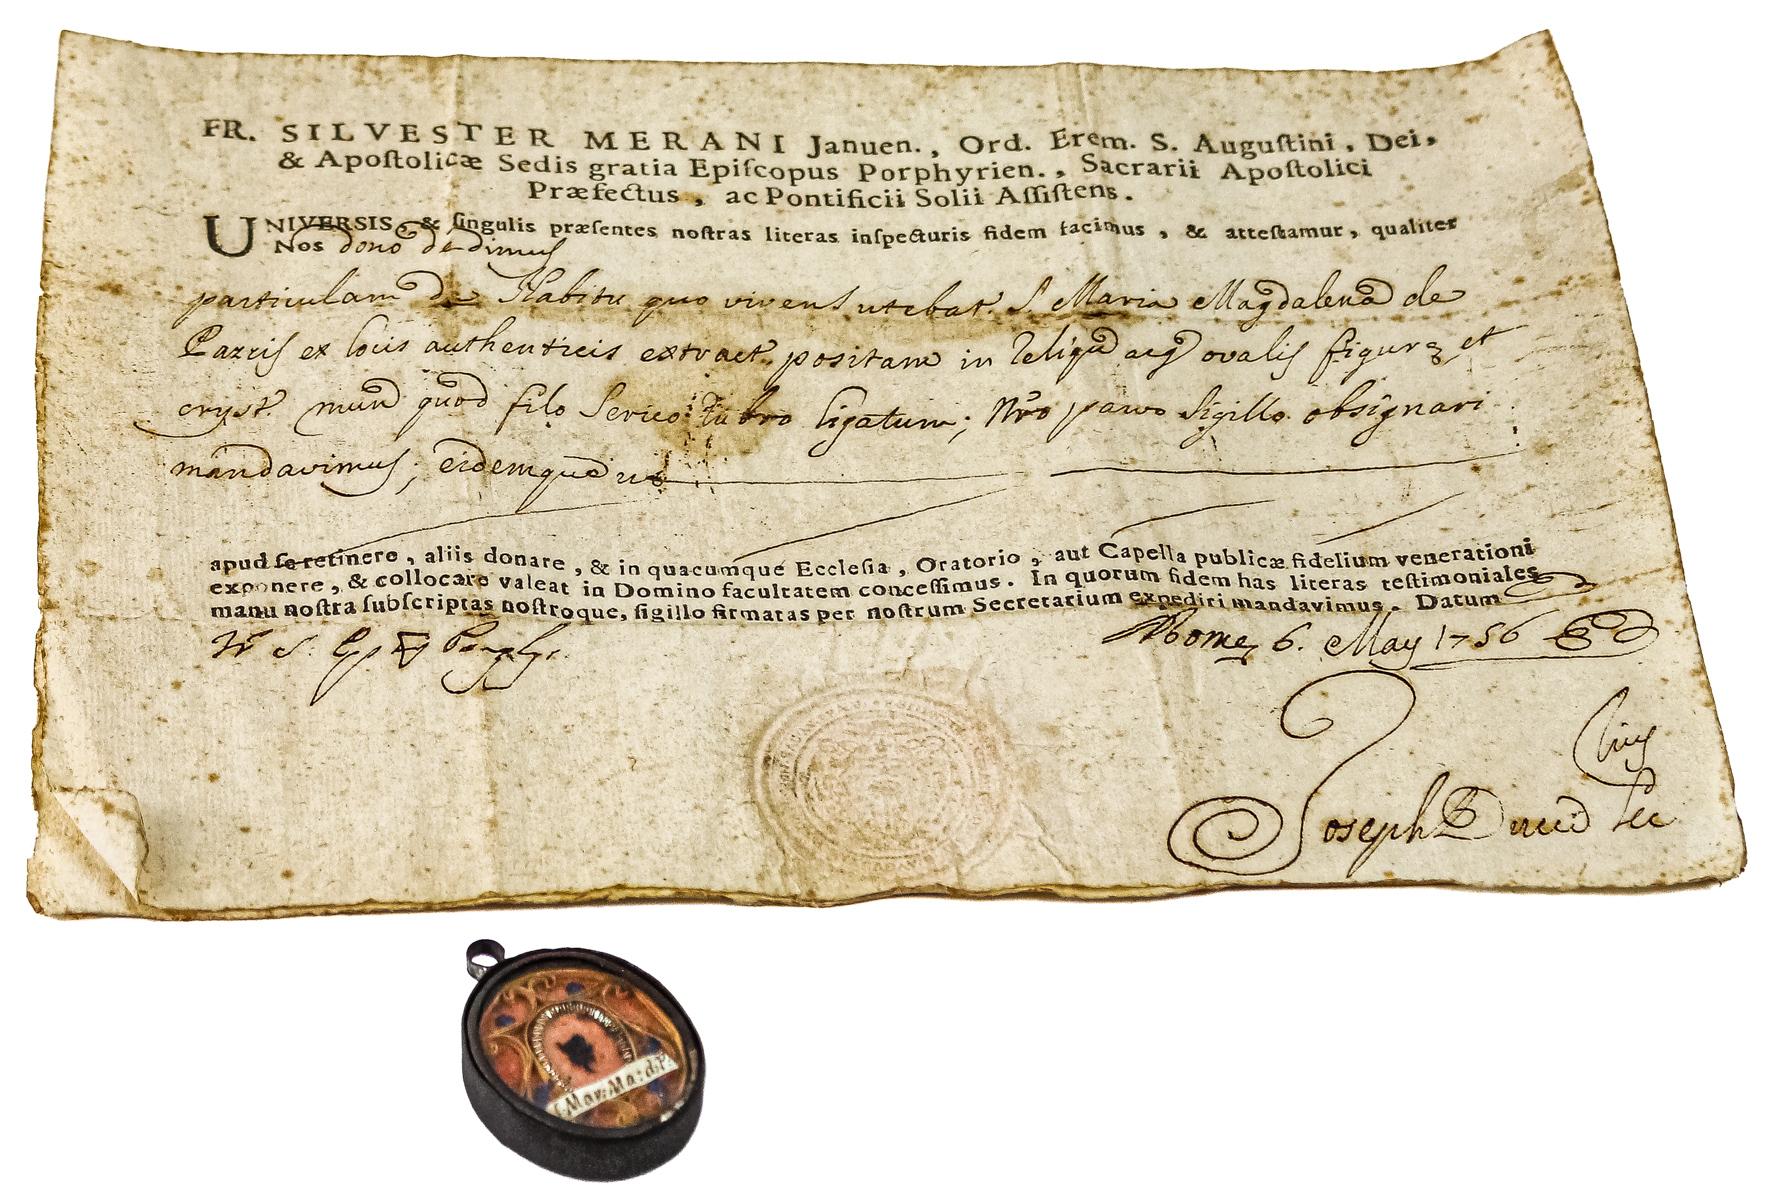 FR. SILVESTER MERANI Januen., Ord. Erem. S. Auguſtini, Dei,
& Apoſtolicæ Sedis gratia Epiſcopus Porphyrien., Sacrarii Apoſtolici
Præfectus, ac Pontificii Solii Aſſiſtens.
UNIVERSIS, & ſingulis præſentes noſtras literas inſpecturis fidem facimus, & atteſtamur, qualiter
Nos dono dedimus
particulam de Habitu quo vivens utebat. S. Maria Magdalena de
Pazzis ex locis authenticis extract. positam in reliqu arg ovalis figuræ et
cryst. mun quod filo serico rubro ligatum; Nro parvo sigillo obsignari
mandavimus; eidemque ut
apud ſe retinere, aliis donare, & in quacumque Eccleſia, Oratorio, aut Capella publicæ fidelium venerationi
exponere, & collocare valeat in Domino facultatem conceſſimus. In quorum fidem has literas teſtimoniales
manu noſtra ſubſcriptas noſtroque, ſigillo firmatas per noſtrum Secretarium expediri mandavimus. Datum
Romæ 6. May 1756
Joseph
S. Mar: Ma: d: P.